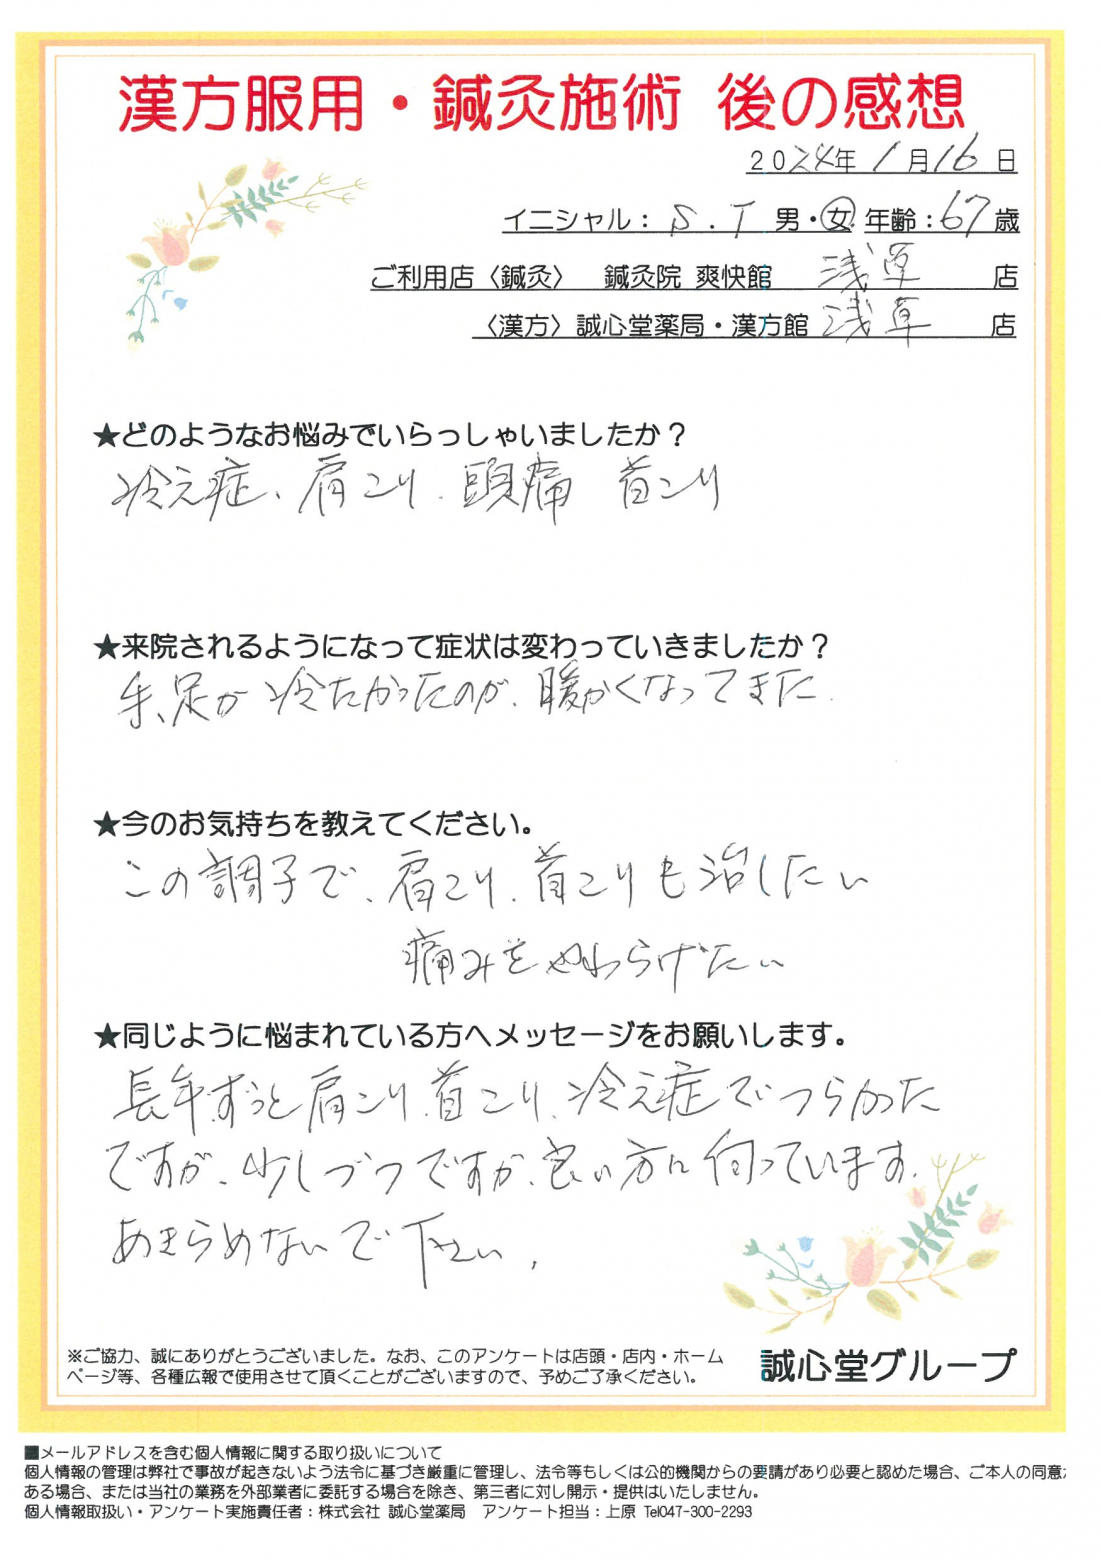 漢方服用・鍼灸施術 後の感想
2024年 1月16日
イニシャル： S.T 男・女 年齢：67歳
ご利用店〈鍼灸〉 鍼灸院 爽快館 浅草 店
〈漢方〉誠心堂薬局・漢方館 浅草 店
★どのようなお悩みでいらっしゃいましたか？
冷え症、肩こり、頭痛 首こり
★来院されるようになって症状は変わっていきましたか？
手、足が冷たかったのが、暖かくなってきた。
★今のお気持ちを教えてください。
この調子で、肩こり、首こりも治したい
痛みをやわらげたい
★同じように悩まれている方へメッセージをお願いします。
長年ずっと肩こり、首こり、冷え症でつらかった
ですが、少しづつですが、良い方に向っています。
あきらめないで下さい。
※ご協力、誠にありがとうございました。なお、このアンケートは店頭・店内・ホーム
ページ等、各種広報で使用させて頂くことがございますので、予めご了承ください。
誠心堂グループ
■メールアドレスを含む個人情報に関する取り扱いについて
個人情報の管理は弊社で事故が起きないよう法令に基づき厳重に管理し、法令等もしくは公的機関からの要請があり必要と認めた場合、ご本人の同意が
ある場合、または当社の業務を外部業者に委託する場合を除き、第三者に対し開示・提供はいたしません。
個人情報取扱い・アンケート実施責任者：株式会社 誠心堂薬局 アンケート担当：上原 Tel047-300-2293